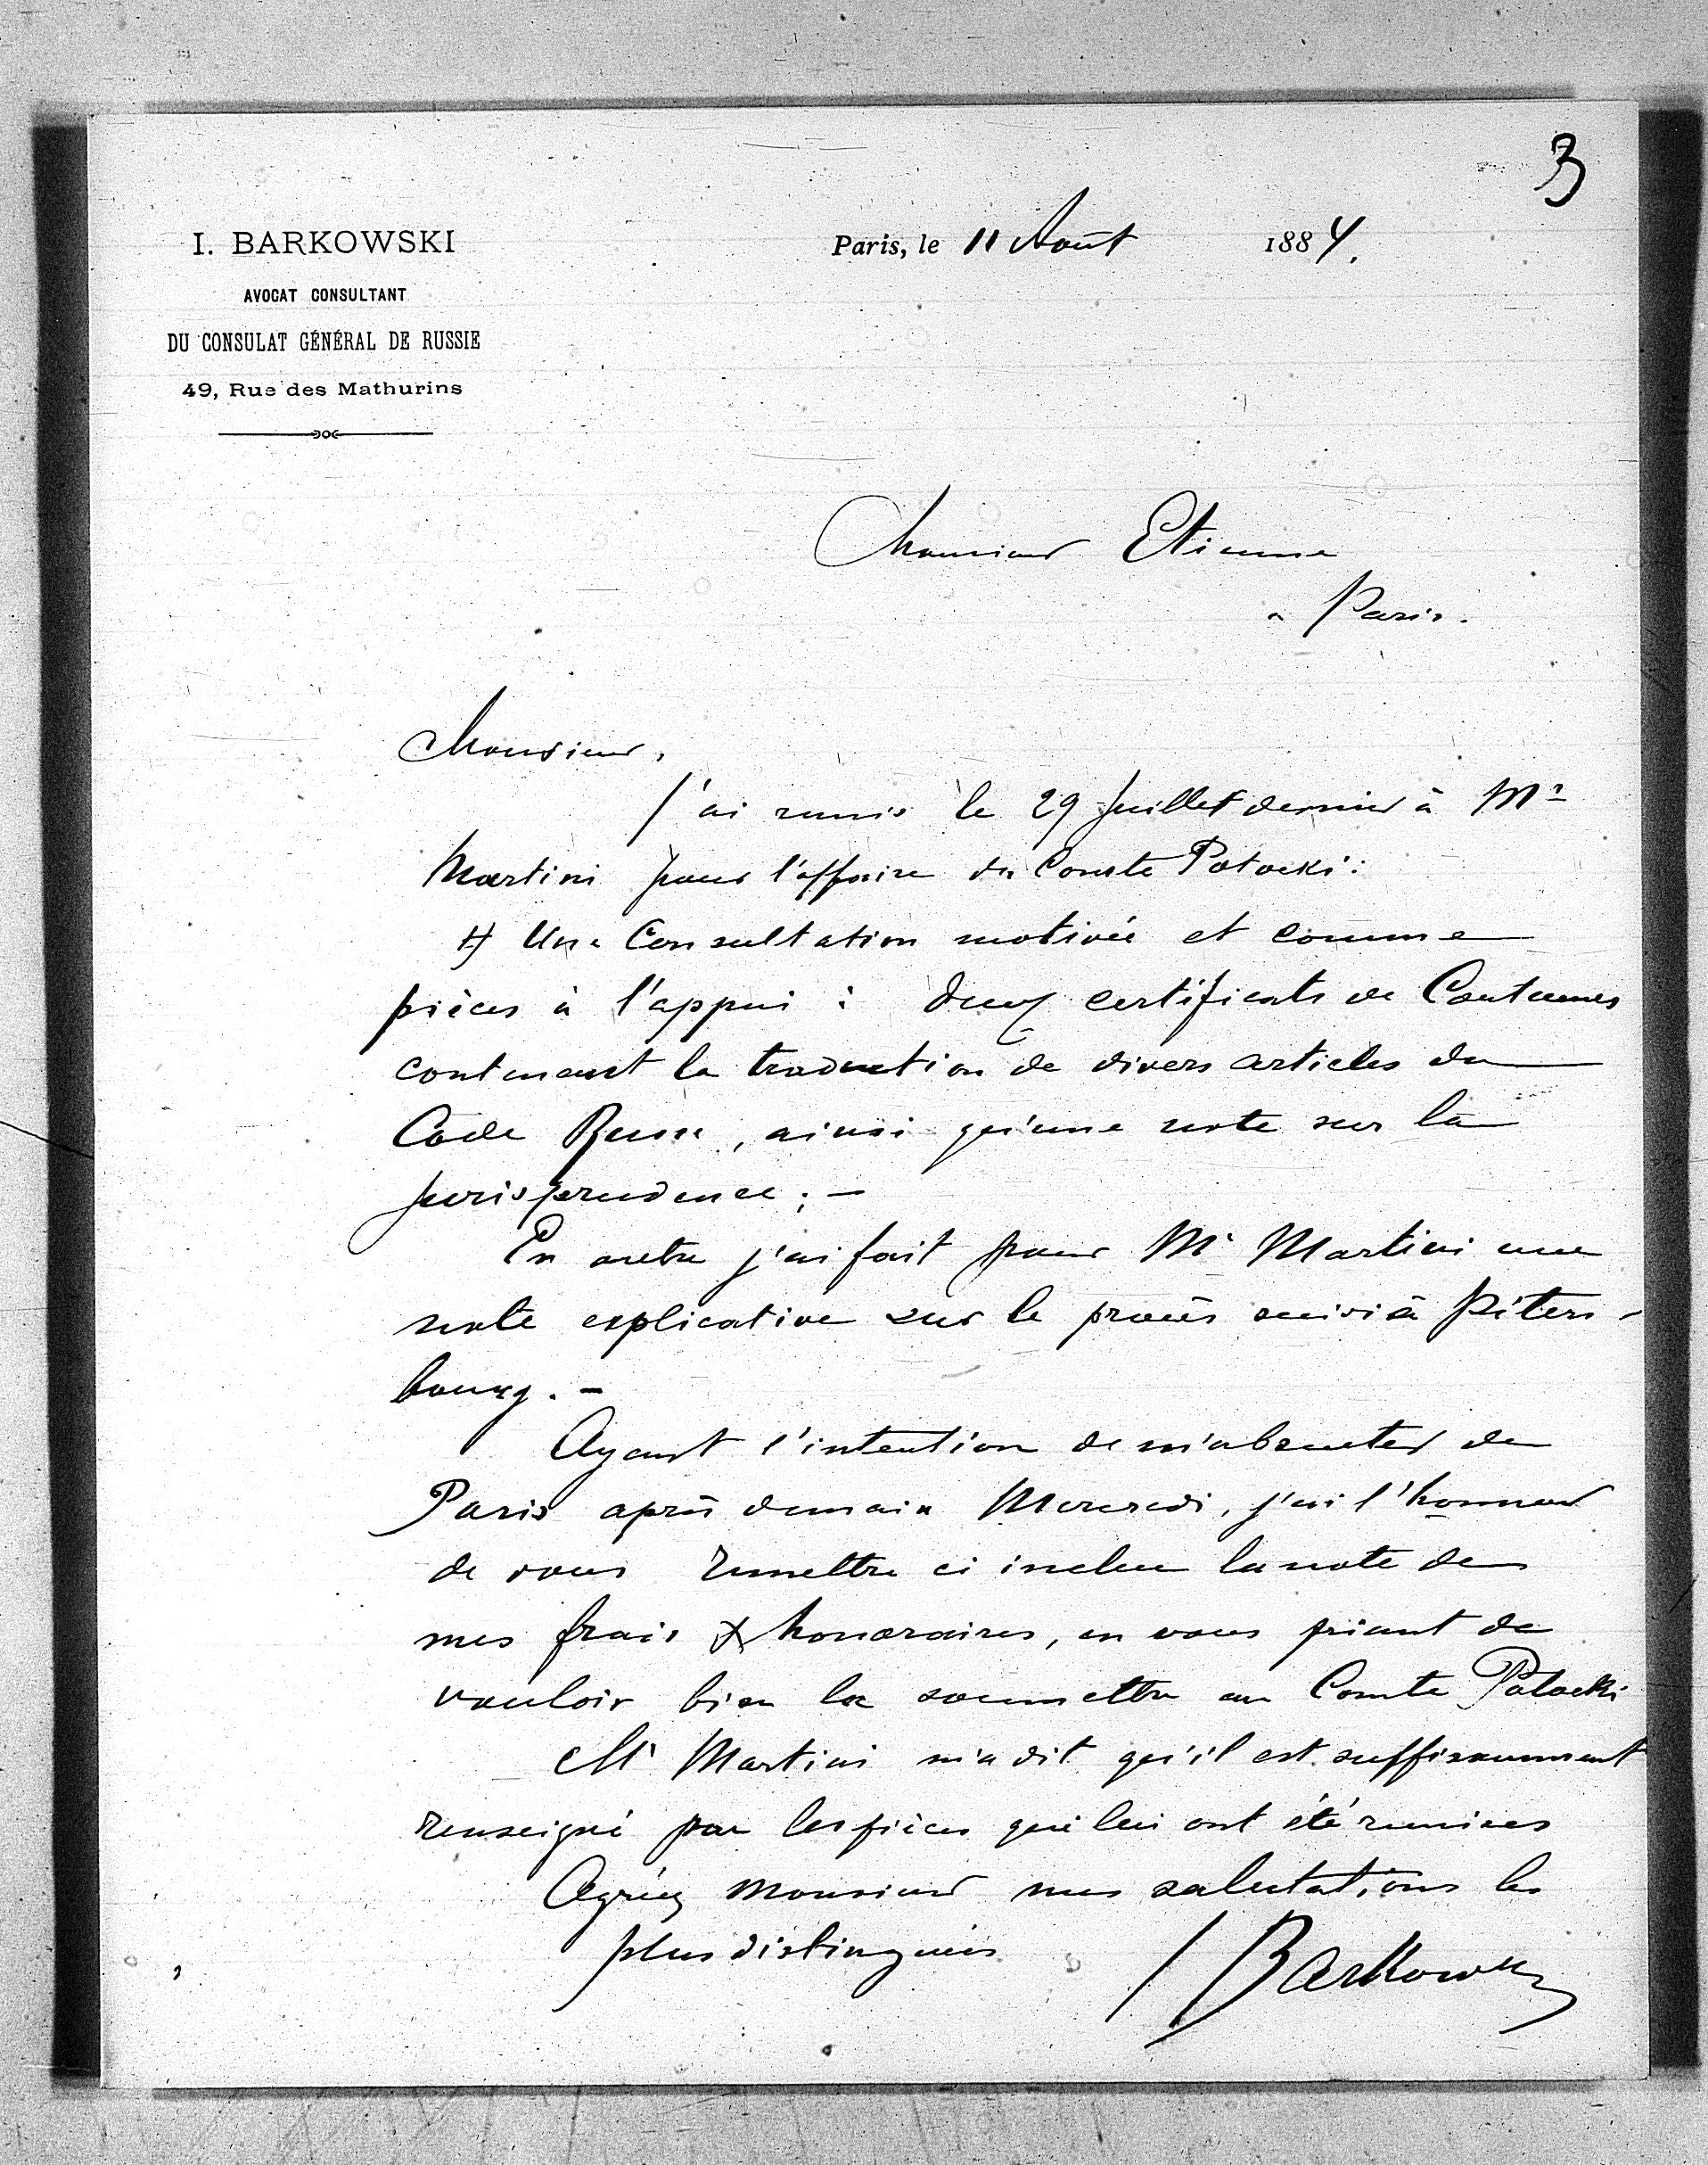 3
I. BARKOWSKI
AVOCAT CONSULTANT
DU CONSULAT GÉNÉRAL DE RUSSIE
49, Rue des Mathurins
Paris, le 11 Août 1884.
Monsieur Etienne
à Paris.
Monsieur,
J'ai remis le 29 Juillet dernier à Mr
Martini pour l'affaire du Comte Potocki:
1) Une Consultation motivée et comme
pièces à l'appui : deux certificats de Coutumes
contenant la traduction de divers articles du
Code Russe, ainsi qu'une note sur la
Jurisprudence; –
En outre j'ai fait pour Mr Martini une
note explicative sur le procès suivi à Péters-
bourg. –
Ayant l'intention de m'absenter de
Paris après demain Mercredi, j'ai l'honneur
de vous remettre ci incluse la note de
mes frais & honoraires, en vous priant de
vouloir bien la soumettre au Comte Potocki
Mr Martini m'a dit qu'il est suffisamment
renseigné par les pièces qui lui ont été remises
Agréez Monsieur mes salutations les
plus distinguées
I Barkowski